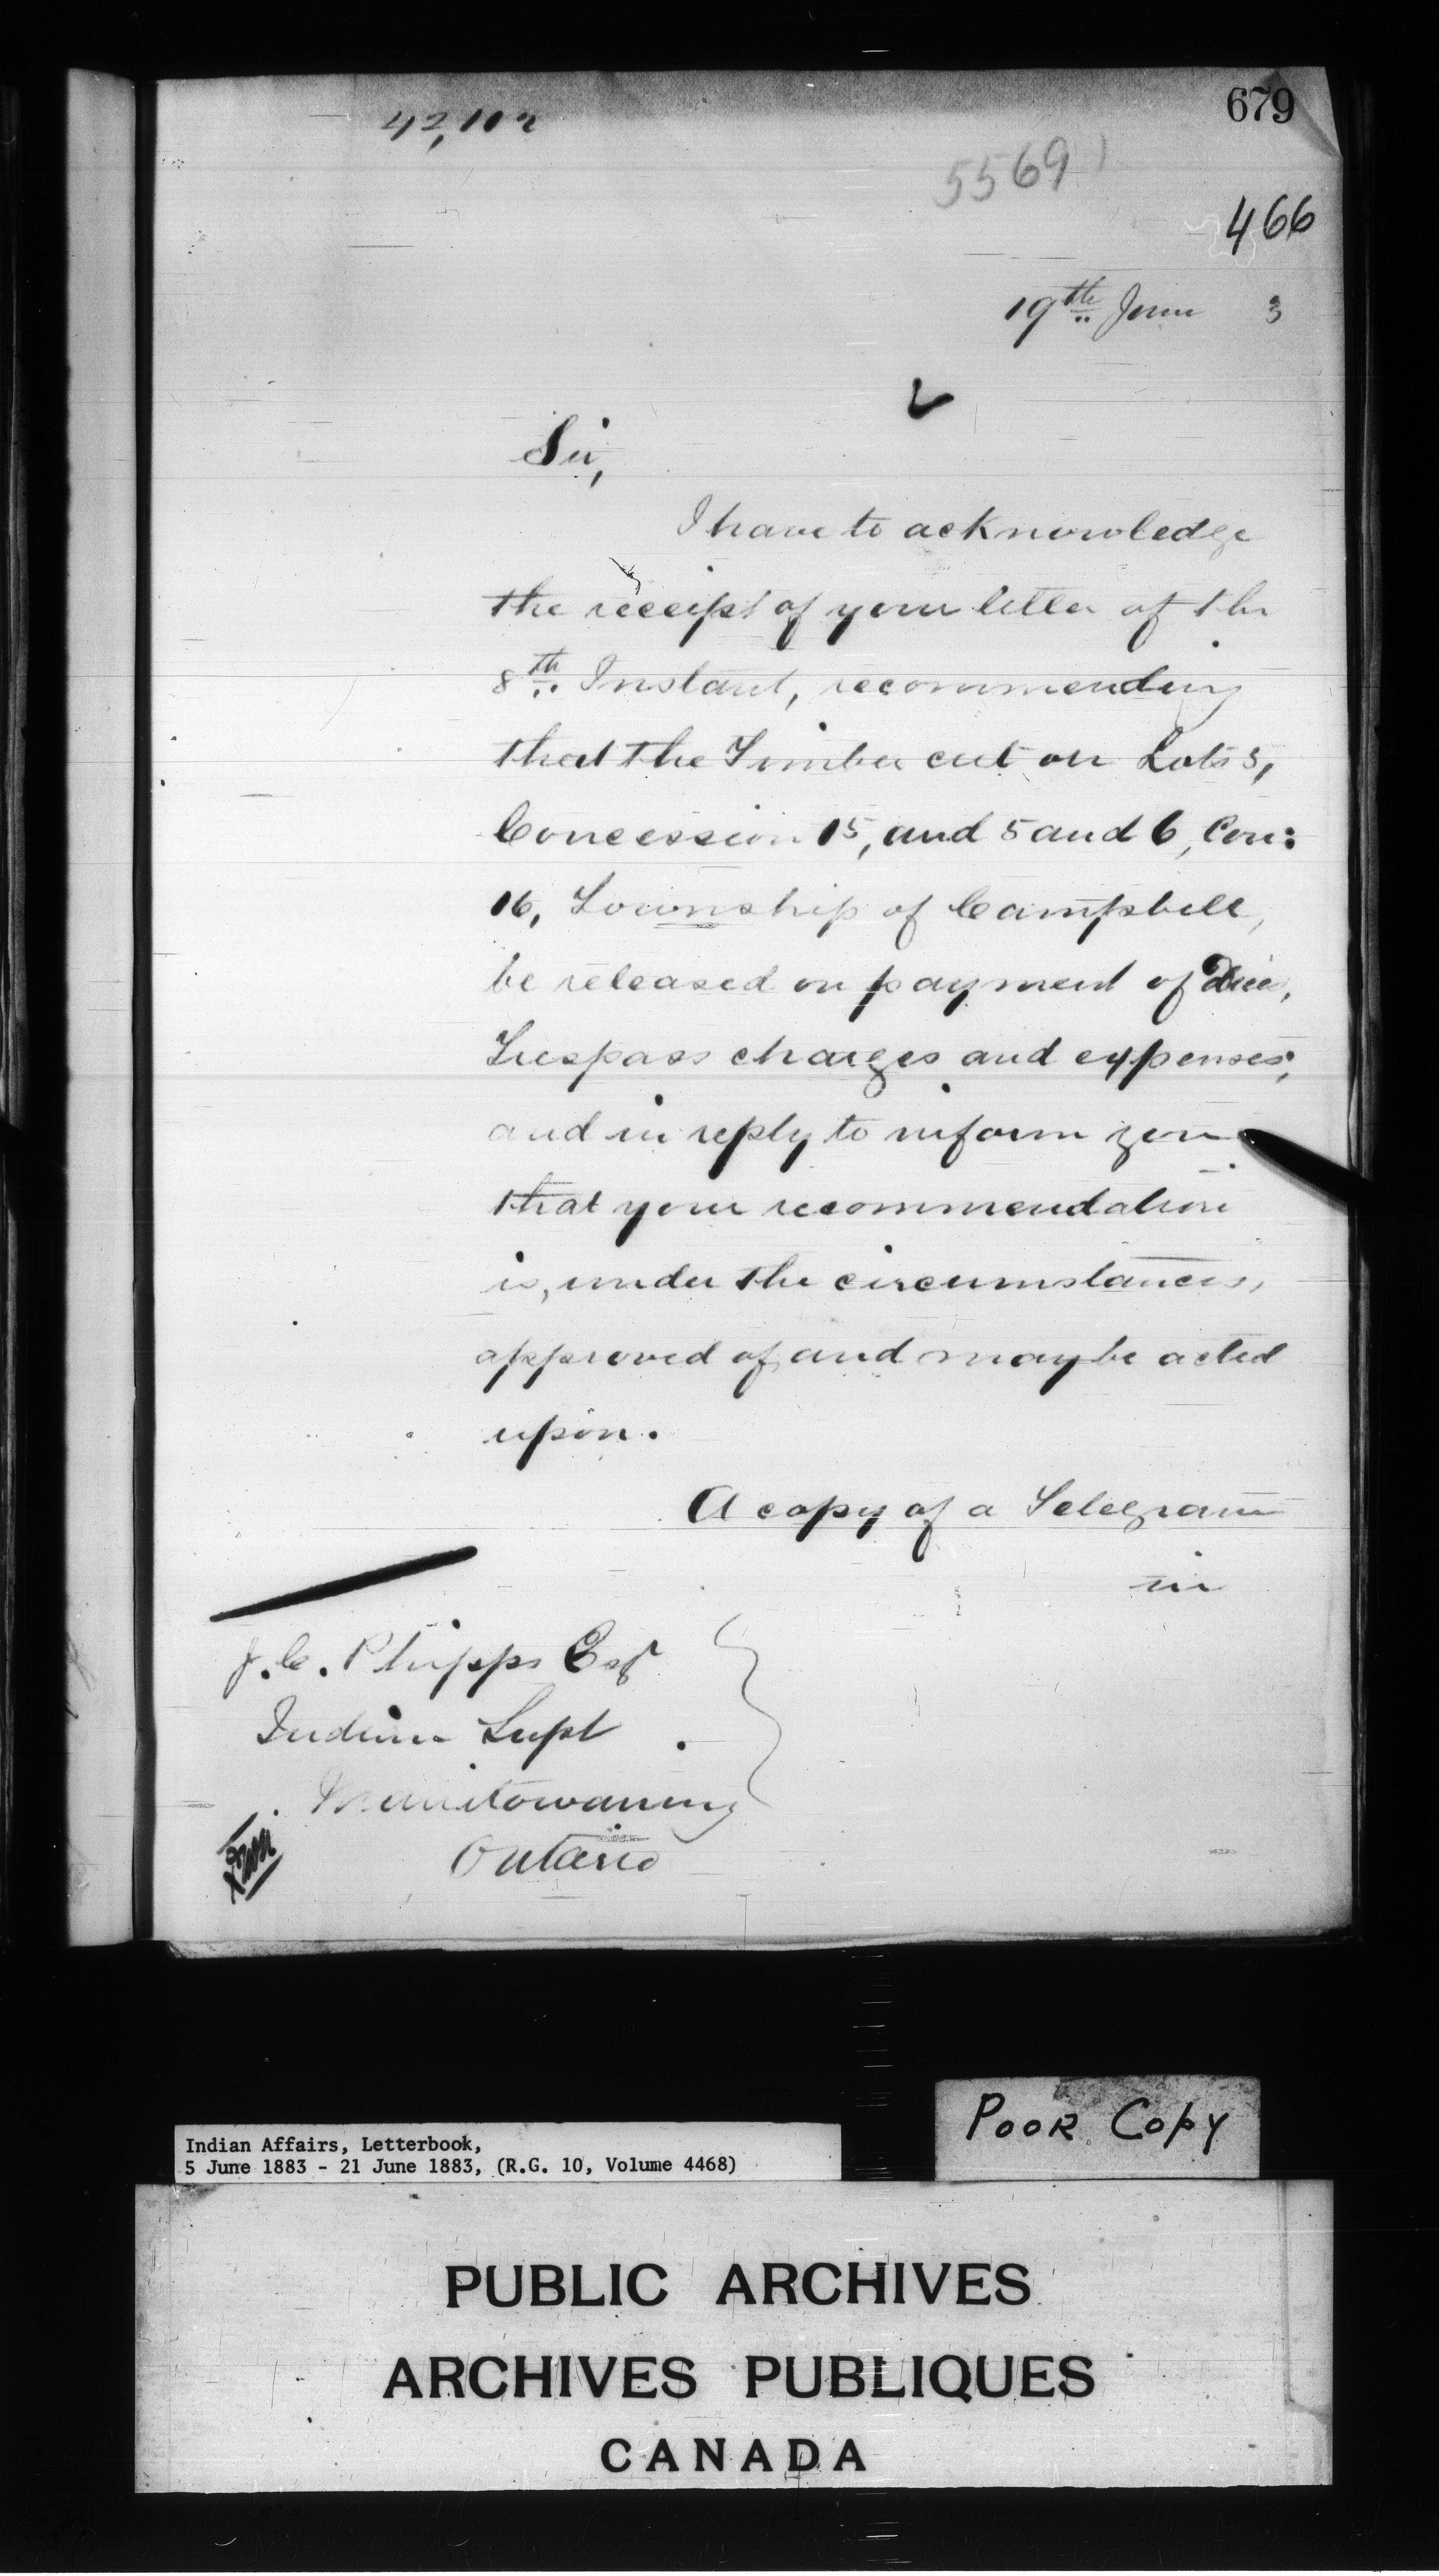 679
42,102
5569
466
19th June 3
Sir,
I have to acknowledge
the receipt of your letter of the
8th Instant, recommending
that the Timber cut on Lots 3,
Concession 15, and 5 and 6, Con:
16, Township of Campbell,
be released on payment of Dues,
Trespass charges and expenses;
and in reply to inform you
that your recommendation
is, under the circumstances,
approved of and may be acted
upon.
A copy of a Telegram
in
J. C. Phipps Esqr
Indian Supt
Manitowaning
Ontario
Poor Copy
Indian Affairs, Letterbook,
5 June 1883 - 21 June 1883, (R.G. 10, Volume 4468)
PUBLIC ARCHIVES
ARCHIVES PUBLIQUES
CANADA